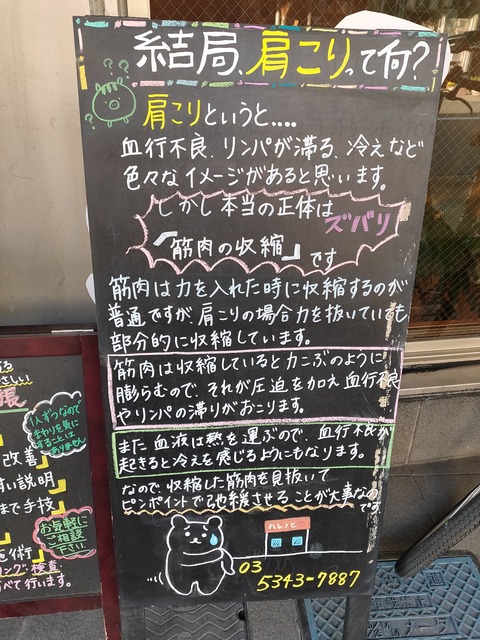 結局、肩こりって何?
肩こりというと....
血行不良、リンパが滞る、冷えなど
色々なイメージがあると思います。
しかし本当の正体は
ズバリ
「筋肉の収縮」です
筋肉は力を入れた時に収縮するのが
普通ですが、肩こりの場合力を抜いていても
部分的に収縮しています。
筋肉は収縮していると力こぶのように
膨らむので、それが圧迫を加え血行不良
やリンパの滞りがおこります。
また血液は熱を運ぶので、血行不良が
起きると冷えを感じるようにもなります。
なので収縮した筋肉を見抜いて
ピンポイントで弛緩させることが大事なの
です
ハレノヒ
03
5343-7887
1人ずつなので
まわりを気に
することは
ありません
改善
説明
まで手技
お気軽に
ご相談
下さい
術
リング・検査
べて行います。